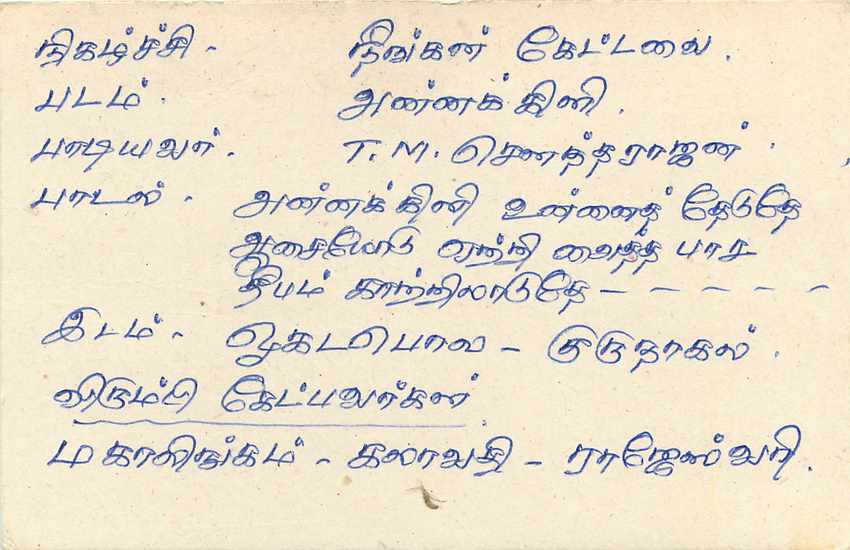 நிகழ்ச்சி - நீங்கள் கேட்டவை.
படம். அன்னக்கிளி.
பாடியவர். T. M. சௌந்தராஜன்.
பாடல். அன்னக்கிளி உன்னைத் தேடுதே
ஆசையோடு ஏற்றி வைத்த பாச
தீபம் காற்றிலாடுதே - - - - -
இடம். ஒகடபொல - குருநாகல்.
விரும்பி கேட்பவர்கள்
மகாலிங்கம் - கலாவதி - ராஜேஸ்வரி.